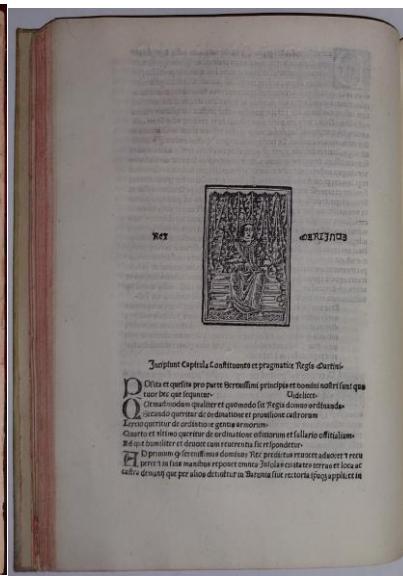 Rex MERTINUS
Incipiunt Capitula Constituento et pragmatice Regis Martini.
POsita et quesita pro parte Serenissimi principis et domini nostri sunt qua
tuor hec que sequuntur. Videlicet.
QUemadmodum qualiter et quomodo sit Regia domus ordinanda.
Secundo queritur de ordinatione et provisione castrorum
Tercio queritur de ordinatione gentis armorum.
Quarto et ultimo queritur de ordinatione offitiorum et sallario offitialium.
Ad que humiliter et devote cum reverentia sic respondetur.
AD primum q serenissimus dominus Rex predictus revocet advocet et recu
peret et in suis manibus reponet omnes Insulas civitates terras et loca ac
castra que per alios detinetur in Baronia sive rectoria ipsasque applicet in